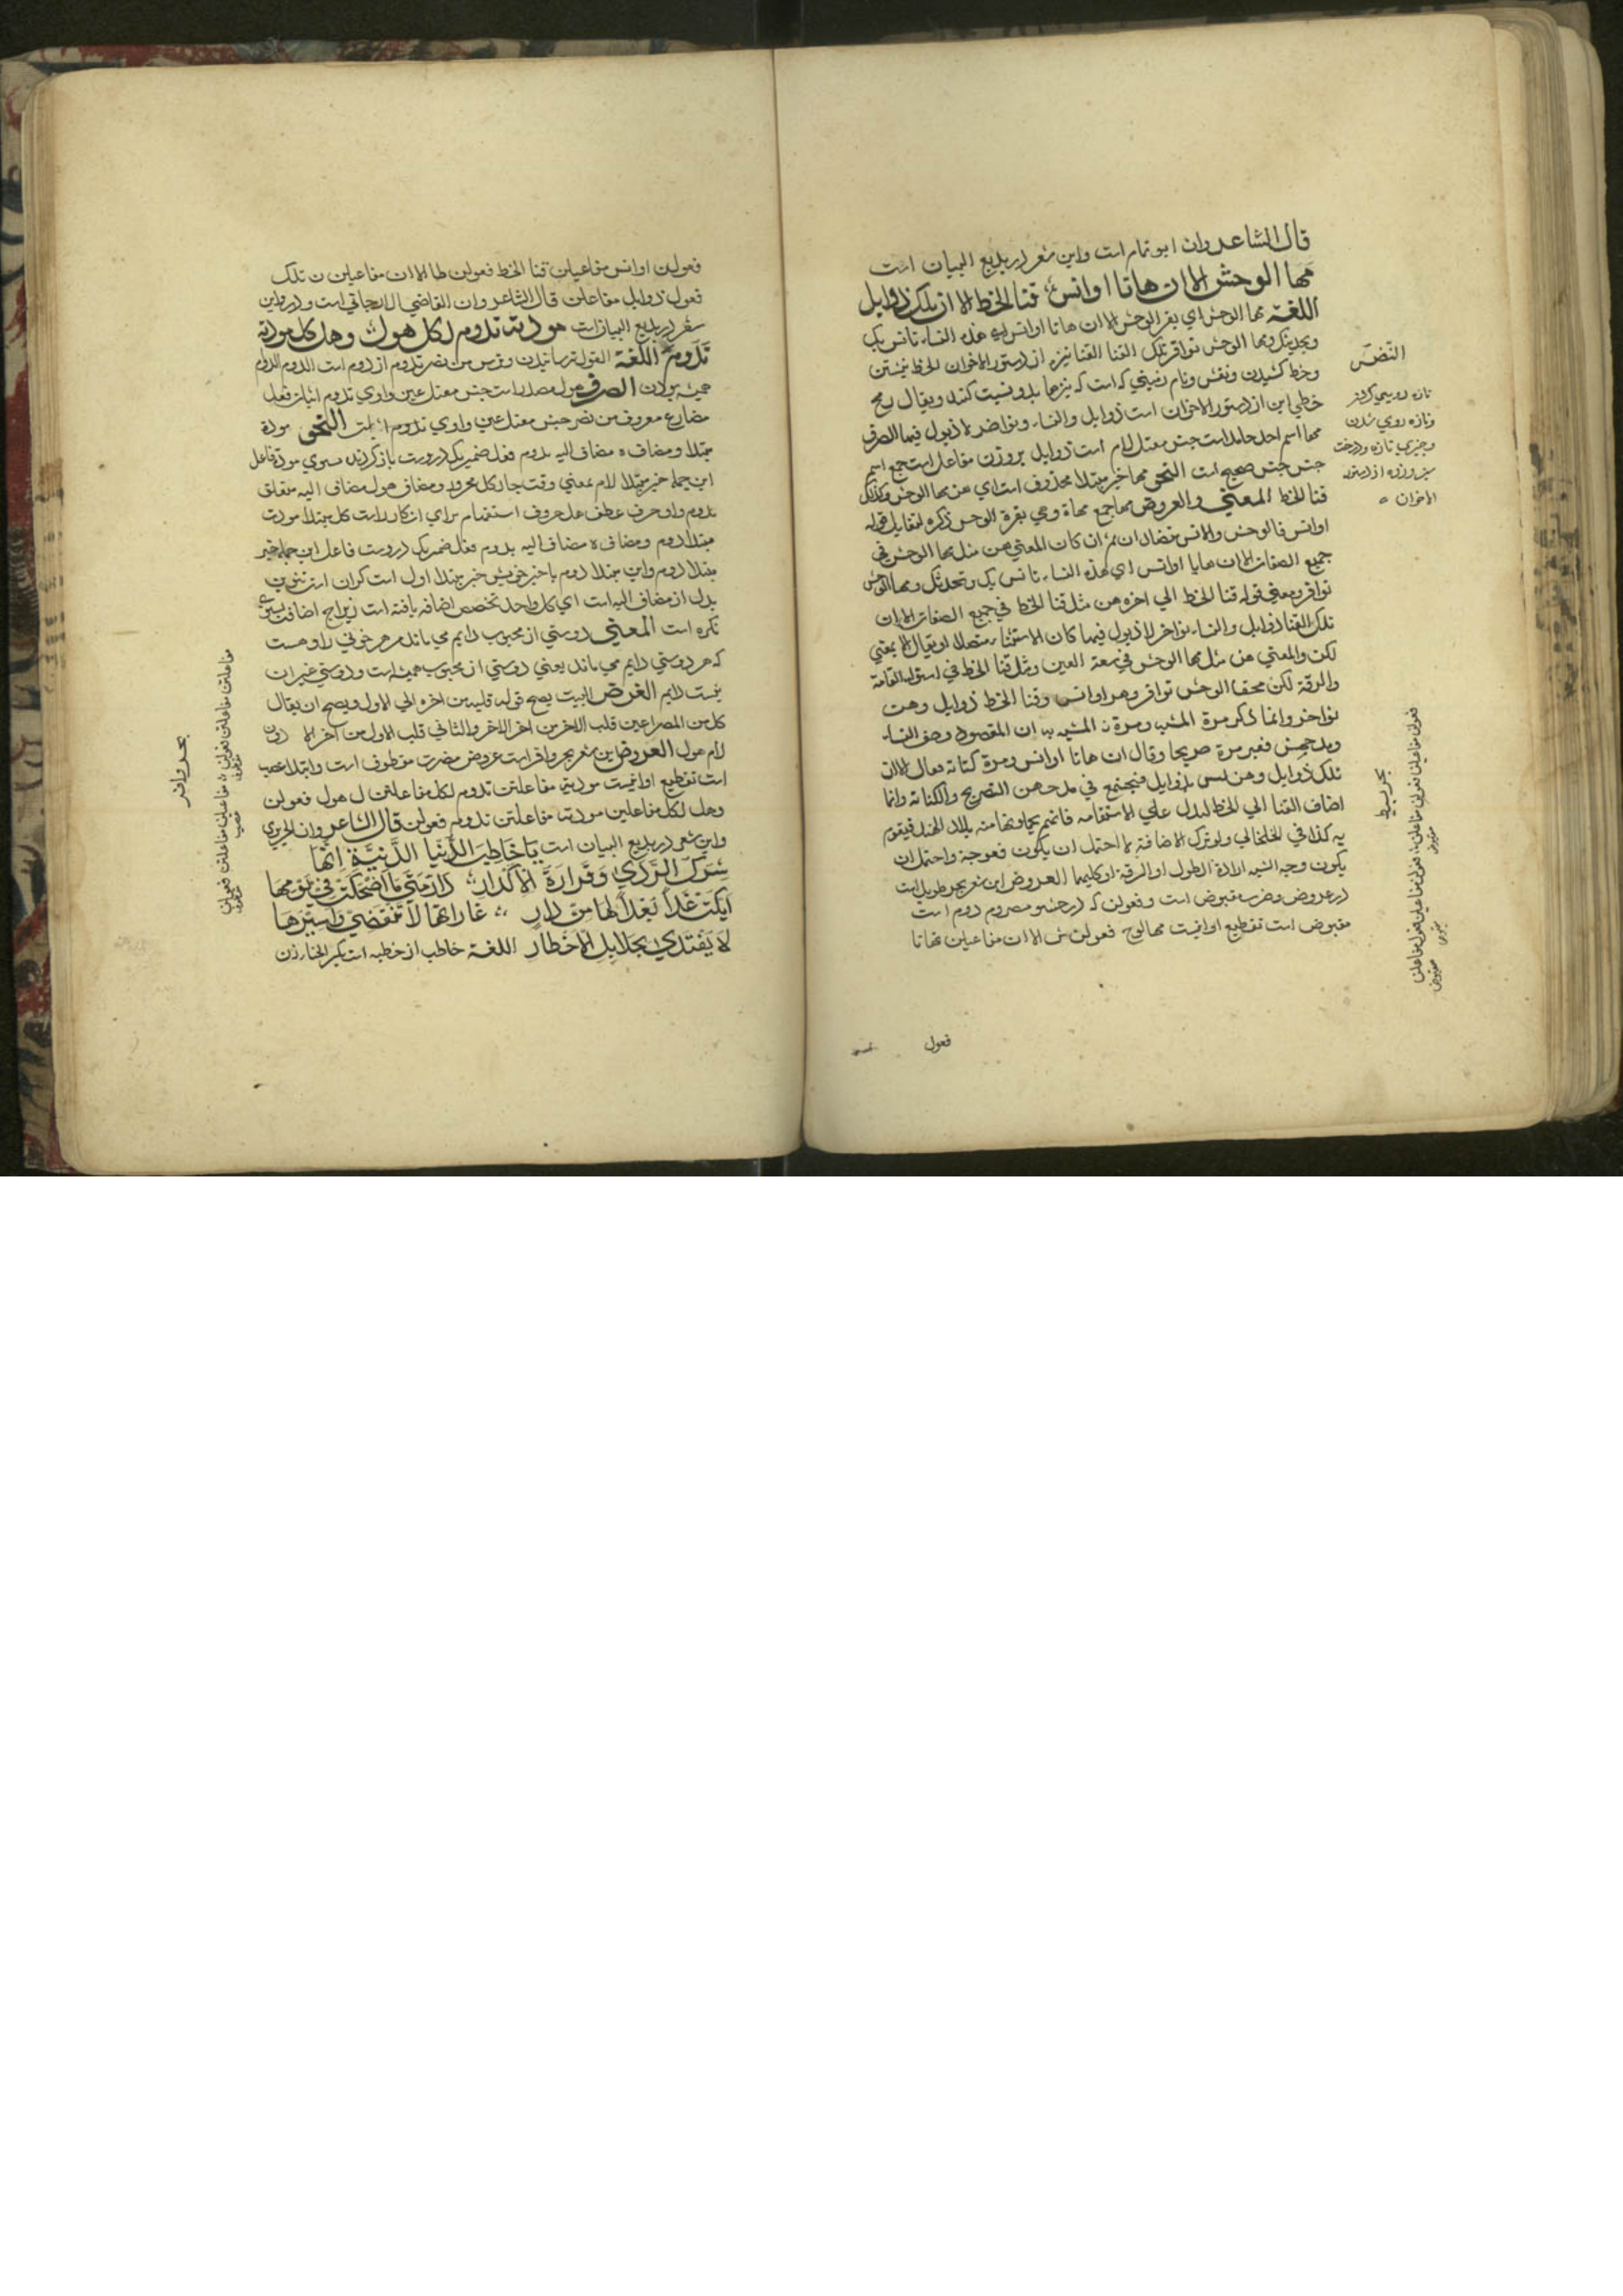 قال الشاعر وان ابو تمام است واین شعر در بدیع البیان است
مها الوحش الا ان هاتا اوانس قنا الخط الا ان تلک ذوابل
اللغة مها الوحش ای بقر الوحش الا ان هاتا اوانس ای هذه النساء تانس بک
ویحدثک ومها الوحش نوافر تلک القنا القنا نیزه از دستور الاخوان الخط نبشتن
وخط کشیدن ونقش ونام زمینی که است که نیزها بدو نسبت کنند ویقال رمح
خطی این از دستور الاخوان است ذوابل والنساء ونواضر لا ذبول فیها الصرف
مها اسم احد جامد است جنس معتل لام است ذوابل بروزن مفاعل است جمع اسم
جنس جنس صحیح است النحو مها خبر مبتدا محذوف است ای هن مها الوحش وکذلک
قنا الخط المعنی والعروض مها جمع مهاة وهی بقرة الوحش ذکره لتقابل قوله
اوانس فالوحش والانس متضادان ثم ان کان المعنی هن مثل مها الوحش فی
جمیع الصفات الا ان هایا اوانس ای هذه النساء تانس بک وتحدثک ومها الوحش
نوافر ومعنی قوله قنا الخط الی اخره هن مثل قنا الخط فی جمیع الصفات الا ان
تلک القنا ذوابل والنساء نواضر لا ذبول فیها کان الاستثناء متصلا او یقال الا بمعنی
لکن والمعنی هن مثل مها الوحش فی سعة العین ومثل قنا الخط فی استواء القامة
والرقة لکن مها الوحش نوافر وهن اوانس وقنا الخط ذوابل وهن
نواضر وانما ذکر مرة المشبه ومرة المشبه به ان المقصود وصف النساء
ومدحهن فعبر مرة صریحا وقال ان هاتا اوانس ومرة کنایة فقال الا ان
تلک ذوابل وهن لسن بذوابل فیجتمع فی مدحهن التصریح والکنایة وانما
اضاف القنا الی الخط لیدل علی الاستقامة فانهم
به کذا فی الخلخالی ولو ترک الاضافة لاحتمل ان یکون معوجة واحتمل ان
یکون وجه الشبه ارادة الطول او الرقة او کلیهما العروض این شعر بحر طویل است
در عروض وضرب مقبوض است وفعولن که در حشو مصروم دوم است
مقبوض است تقطیع او اینست مها الوح فعولن ش الا ان مفاعیلن هاتا
فعول
النضر
تازه رویی کردن
وتازه روی شدن
وچیزی تازه ودرخت
سبز وزر از دستور
الاخوان
بحر بسیط
فعولن مفاعیلن فعولن مفاعلن فعولن مفاعیلن فعول مفاعلن
مقبوض
مقبوض
فعولن اوانس مفاعیلن قنا الخط فعولن طا الا ان مفاعیلن ن تلک
فعول ذوابل مفاعلن قال الشاعر وان القاضی الارجانی است ودر واین
شعر در بدیع البیان است مودته تدوم لکل هول وهل کل مودته
تدوم اللغة الهول ترسانیدن وترس من نصر تدوم از دوم است الدوم الدوام
همیشه بودن الصرف هول مصدر است جنس معتل عین واوی تدوم اثبات فعل
مضارع معروف من نصر جنس معتل عین واوی تدوم النحو مودة
مبتدا ومضاف ه مضاف الیه تدوم فعل ضمیر یک دروست بازگردنده سوی مودة فاعل
این جمله خبر مبتدا لام بمعنی وقت جار کل مجرور ومضاف هول مضاف الیه متعلق
تدوم واو حرف عطف هل حروف استفهام برای انکار است کل مبتدا مودت
مبتدا دوم ومضاف ه مضاف الیه تدوم فعل ضمیر یک دروست فاعل این جمله خبر
مبتدا دوم واین مبتدا دوم با خبر خویش خبر مبتدا اول است
بدل از مضاف الیه است ای کل واحد تخصص اضافه یافته است زیراچه اضافت بسوی
نکره است المعنی دوستی از محبوب دایم می ماند مر هر خوفی را وهست
که هر دوستی دایم می ماند یعنی دوستی از محبوب همیشه است ودوستی غیر ان
نیست دایم الغرض البیت یصح فی له قلبه من اخره الی الاول ویصح ان یقال
کل من المصراعین قلب الاخر من اخر الاخر والثانی قلب الاول من آخر الا دون
لام هول العروض این شعر بحر وافر است عروض وضرب مقطوف است وابتدا عصب
است تقطیع او اینست مودته مفاعلتن تدوم لکل مفاعلتن ل هول فعولن
وهل لکل مفاعلین مودته مفاعلتن تدوم فعولن قال الشاعر وان الحریری
واین شعر در بدیع البیان است یَا خَاطِبَ الدُّنْیَا الدَّنِیَّةِ اِنَّهَا
شَرَکُ الرَّدَی وَقَرَارَةُ الاَکْدَارِ دَارٌ مَتَی مَا اَضْحَکَتْ فِی یَوْمِهَا
اَبْکَتْ غَدًا بُعْدًا لَهَا مِنْ دَارِ غَارَاتُهَا لَا تَنْقَضِی وَاَسِیرُهَا
لَا یُفْتَدَی بِجَلَایِلِ الاَخْطَارِ اللغة خاطب از خطبه است بکسر الخاء زن
بحر وافر
مفاعلتن مفاعلتن فعولن مفاعلین مفاعلتن فعولن
مقطوف
عصب
مقطوف